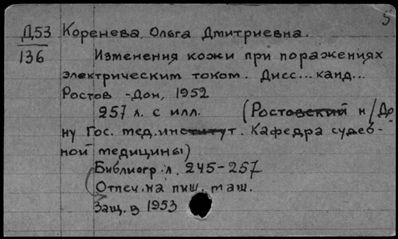 5
Д53 Коренева, Ольга Дмитриевна.
136 Изменения кожи при поражениях
электрическим током. Дисс... канд...
Ростов-Дон, 1952
257 л. с илл. (Ростовский н/До
ну Гос. мед.институт. Кафедра судеб-
ной медицины)
Библиогр. л. 245-257
Отпеч. на пиш. маш.
Защ. в 1953